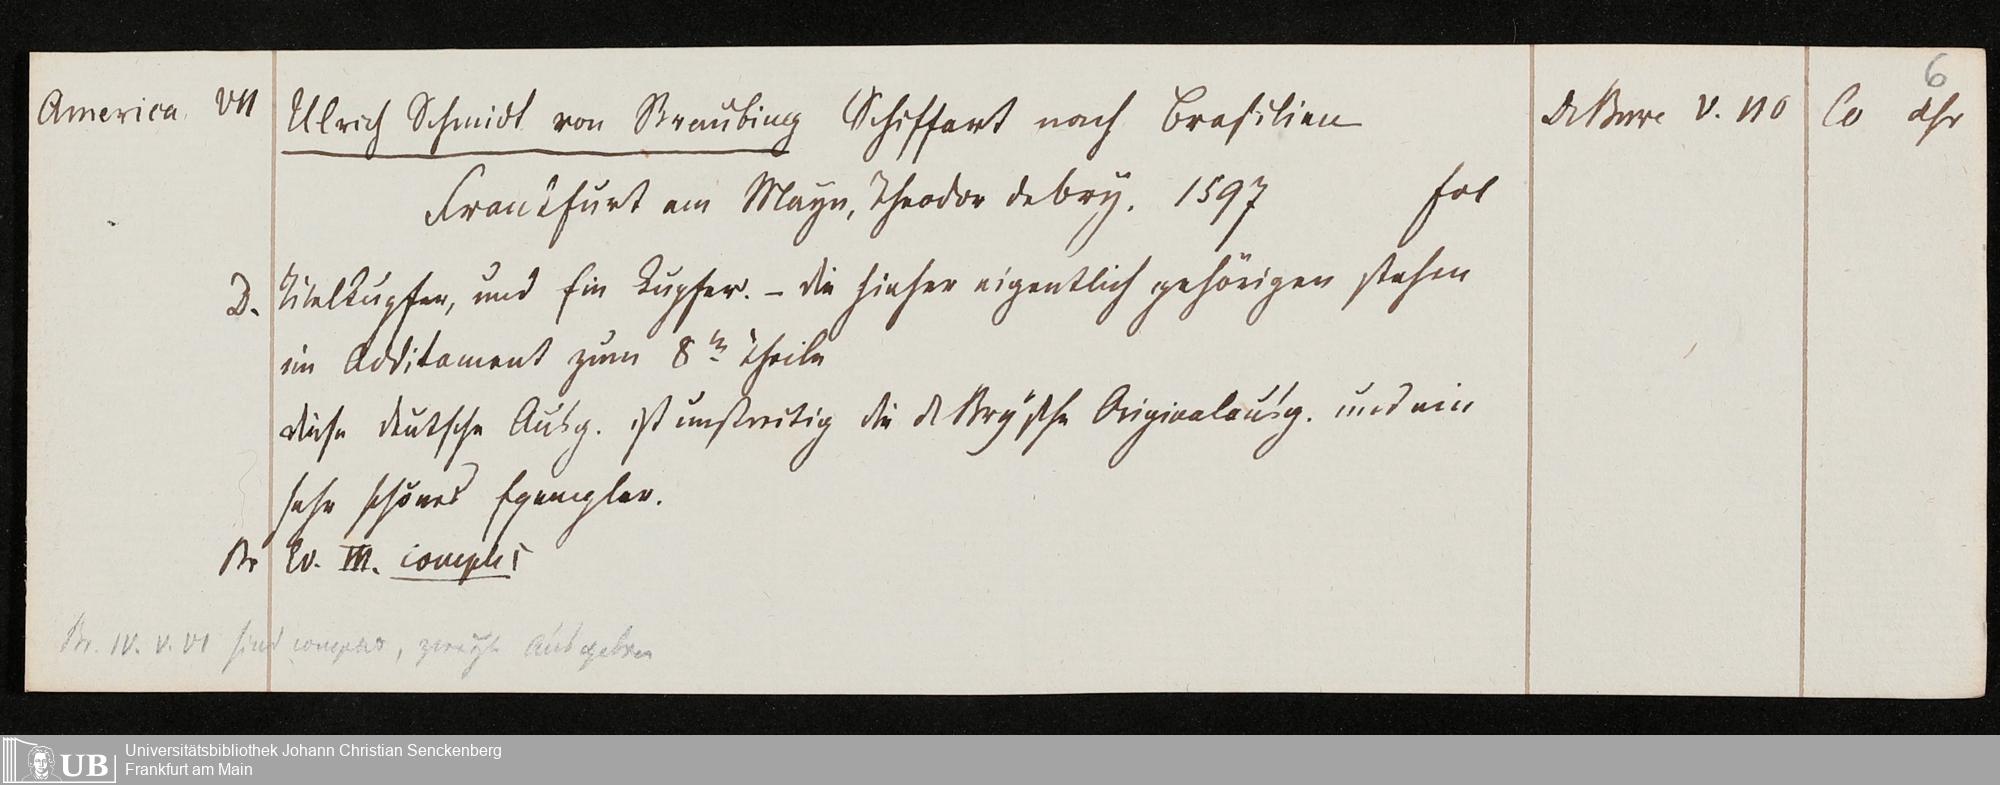 6
America VII Ulrich Schmidt von Straubing Schiffart nach Brasilien De Bure V. 110 Co
Franckfurt am Mayn, Theodor de bry. 1597 fol
D. Titelkupfer, und Ein Kupfer. – die hieher eigentlich gehörigen stehen
im Additament zum 8ten Theile
diese deutsche Ausg. ist unstreitig die de Bry'sche Originalausg. und ein
sehr schönes Exemplar.
Br. III. complet
Br. IV. V. VI sind complet, zweyte Ausgaben
UB Universitätsbibliothek Johann Christian Senckenberg
Frankfurt am Main